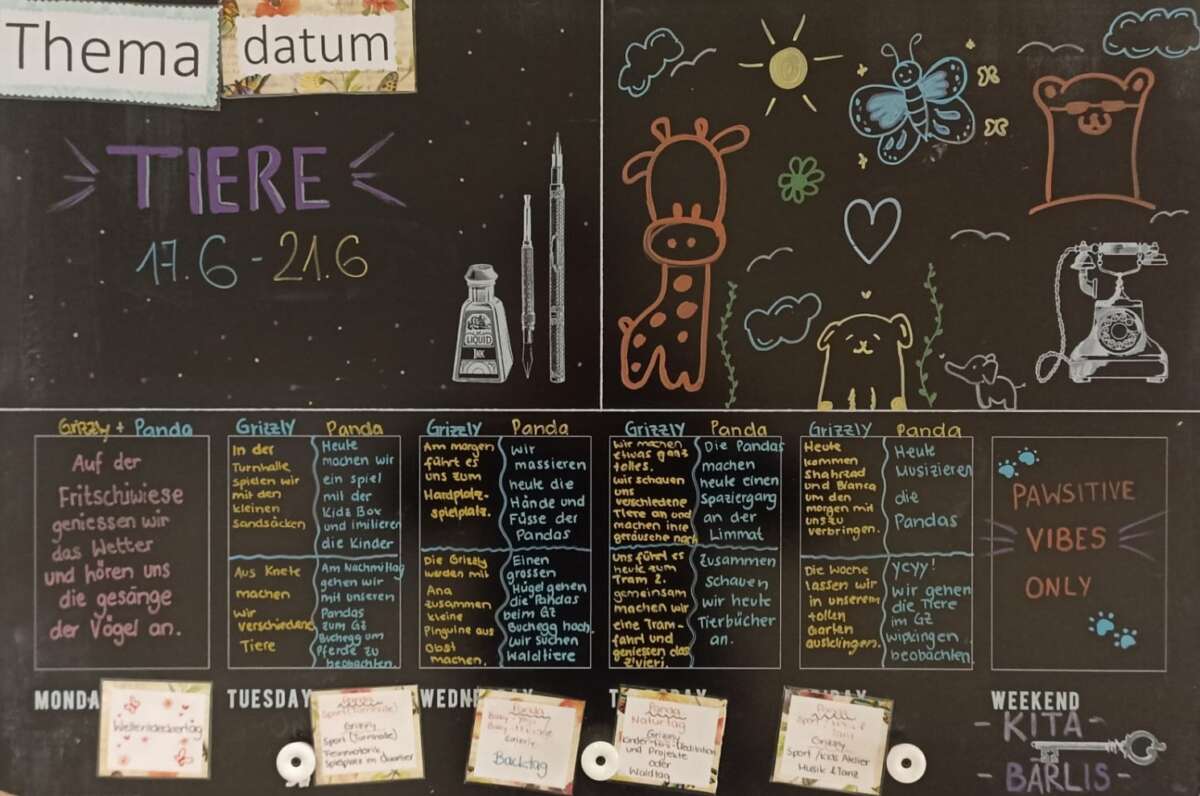 Thema
datum
TIERE
17.6 - 21.6
LIQUID
INK
Grizzly + Panda
Auf der
Fritschiwiese
geniessen wir
das Wetter
und hören uns
die gesänge
der Vögel an.
Grizzly
In der
Turnhalle
spielen wir
mit den
kleinen
Sandsäcken
Aus Knete
machen
wir
verschiedene
Tiere
Panda
Heute
machen wir
ein spiel
mit der
Kids Box
und imitieren
die Kinder
Am Nachmittag
gehen wir
mit unseren
Pandas
zum GZ
Buchegg um
Pferde zu
beobachten.
Grizzly
Am morgen
führt es
uns zum
Hardplatz-
spielplatz.
Die Grizzly
werden mit
Ana
zusammen
kleine
Pinguine aus
Obst
machen.
Panda
Wir
massieren
heute die
Hände und
Füsse der
Pandas
Einen
grossen
Hügel gehen
die Pandas
beim GZ
Buchegg hoch.
wir suchen
Waldtiere
Grizzly
Wir machen
etwas ganz
tolles.
wir schauen
uns
verschiedene
Tiere an und
machen ihre
geräusche nach
Uns führt es
heute zum
Tram 2.
gemeinsam
machen wir
eine Tram-
fahrt und
geniessen das
Z'vieri.
Panda
Die Pandas
machen
heute einen
Spaziergang
an der
Limmat
Zusammen
schauen
wir heute
Tierbücher
an.
Grizzly
Heute
kommen
Shahrzad
und Bianca
um den
morgen mit
uns zu
verbringen.
Die Woche
lassen wir
in unserem
tollen
Garten
ausklingen.
Panda
Heute
Musizieren
die
Pandas
ycyy!
wir gehen
die Tiere
im GZ
wipkingen
beobachten.
PAWSITIVE
VIBES
ONLY
MONDA
TUESDAY
WEDN
WEEKEND
Weltentdeckertag
Sport (Turnhalle)
Grizzly
Sport (Turnhalle)
Feinmotorik
Spielplatz im Quartier
Panda
Backtag
Panda
Naturtag
Grizzly
und Projekte
oder
Waldtag
Panda
Grizzly
Sport /Kids Atelier
Musik & Tanz
- KITA -
- BÄRLIS -